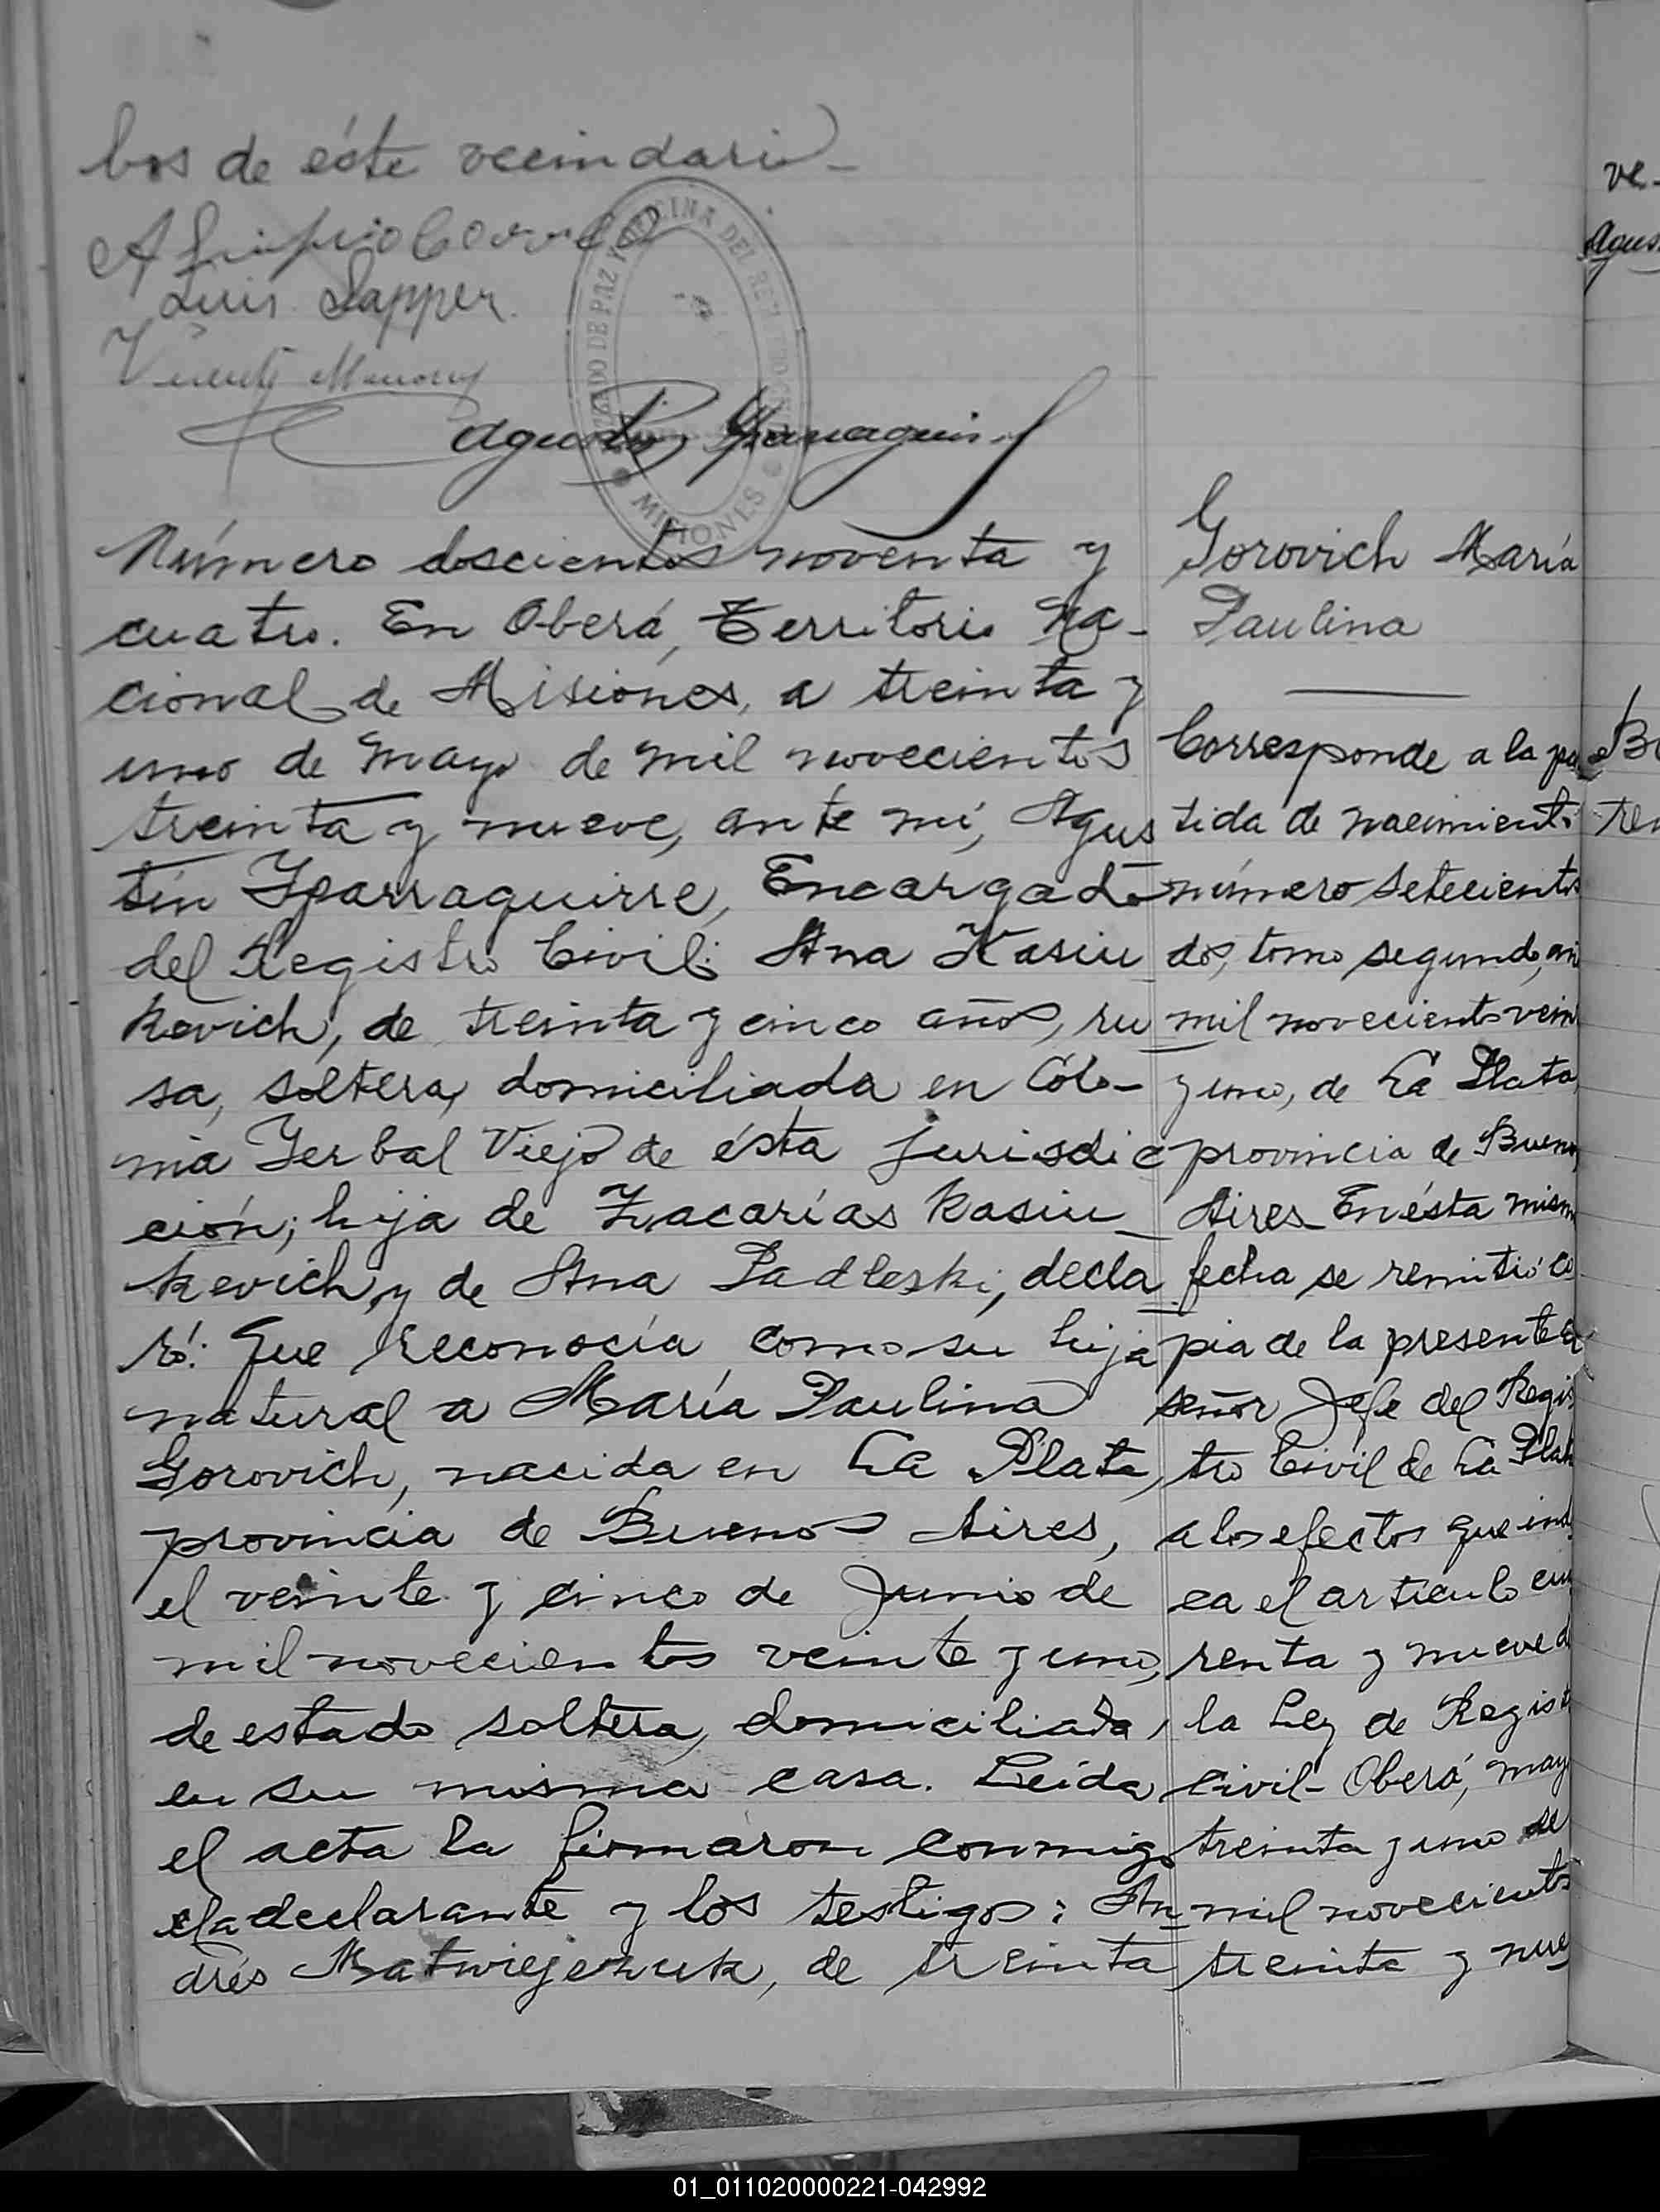 bos de éste vecindario_
Luis Sapper.
Vicente
JUZGADO DE PAZ Y OFICINA DEL REG.
MISIONES
Número doscientos noventa y
cuatro. En Oberá, Territorio Na-
cional de Misiones, a treinta y
uno de mayo de mil novecientos
treinta y nueve, ante mí, Agus
tín Yparraguirre, Encargado
del Registro Civil; Ana Kasiu
kevich, de treinta y cinco años, ru
sa, soltera, domiciliada en Colo-
nia Yerbal Viejo de ésta jurisdic
ción; hija de Zacarías Kasiu_
kevich, y de Ana Padleski, decla
ró: Que reconocía como su hija
natural a María Paulina
Gorovich, nacida en La Plata,
provincia de Buenos Aires,
el veinte y cinco de Junio de
mil novecientos veinte y uno,
de estado soltera, domiciliada,
en su misma casa. Leída
el acta la firmaron conmigo
la declarante y los testigos: An_
drés Matwiejezuk, de treinta
Gorovich María
Paulina
Corresponde a la par
tida de nacimiento
número setecientos
dos, tomo segundo, año
mil novecientos vein
y uno, de La Plata,
provincia de Buenos
Aires_ En ésta misma
fecha se remitió co
pia de la presente al
señor Jefe del Regis
tro Civil de La Plata
a los efectos que indi
ca el artículo cua
renta y nueve de
la Ley de Regist
Civil- Oberá, mayo
treinta y uno de
mil novecientos
treinta y nue
ve-
Agus
tre
01_011020000221-042992